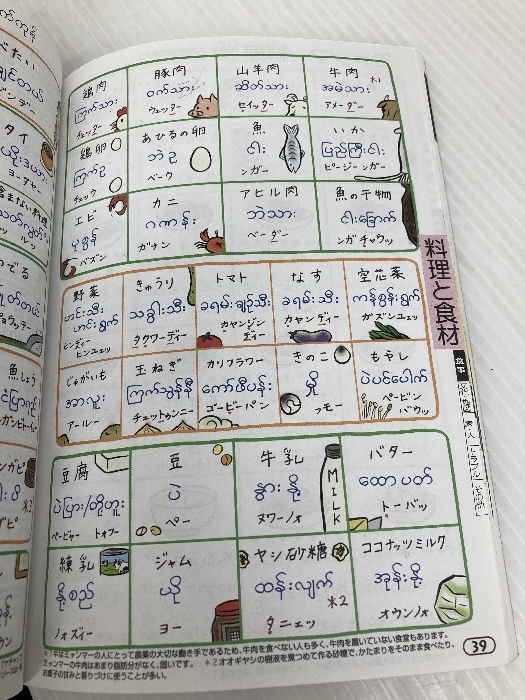 鶏肉
ကြက်သား
チェッター
豚肉
ဝက်သား
ウェッター
山羊肉
ဆိတ်သား
セイッター
牛肉
အမဲသား
アメーダー
*1
鶏卵
ကြက်ဥ
チェッウ
あひるの卵
ဘဲဥ
ベーウ
魚
ငါး
ンガー
いか
ပြည်ကြီးငါး
ピージーンガー
エビ
ပုစွန်
バズン
カニ
ဂဏန်း
ガナン
アヒル肉
ဘဲသား
ベーダー
魚の干物
ငါးခြောက်
ンガチャウッ
料理と食材
食事
野菜
ဟင်းသီး
ဟင်းရွက်
ヒンディー
ヒンユェッ
きゅうり
သခွါးသီး
タクワーディー
トマト
ခရမ်းချဉ်သီး
カヤンジン
ディー
なす
ခရမ်းသီး
カヤンディー
空芯菜
ကန်စွန်းရွက်
ガズンユェッ
じゃがいも
အာလူး
アールー
玉ねぎ
ကြက်သွန်နီ
チェットゥンニー
カリフラワー
ကော်ဖီပန်း
ゴービーパン
きのこ
မှို
フモー
もやし
ပဲပင်ပေါက်
ペービン
バウッ
豆腐
ပဲပြား/တို့ဟူး
ペービャー トオフー
豆
ပဲ
ペー
牛乳
နွားနို့
ヌワーノォ
MILK
バター
ထောပတ်
トーバッ
練乳
နို့စည်
ノォズィー
ジャム
ယို
ヨー
ヤシ砂糖
ထန်းလျက်
*2
タニェッ
ココナッツミルク
အုန်းနို့
オウンノォ
*1 牛はミャンマーの人にとって農業の大切な働き手であるため、牛肉を食べない人も多く、牛肉を置いていない食堂もあります。
ミャンマーの牛肉はあまり脂肪分がなく、固いです。 *2 オオギヤシの樹液を煮つめて作る砂糖で、かたまりをそのまま食べたり、
お菓子の甘みと香りづけに使うことが多い。
39